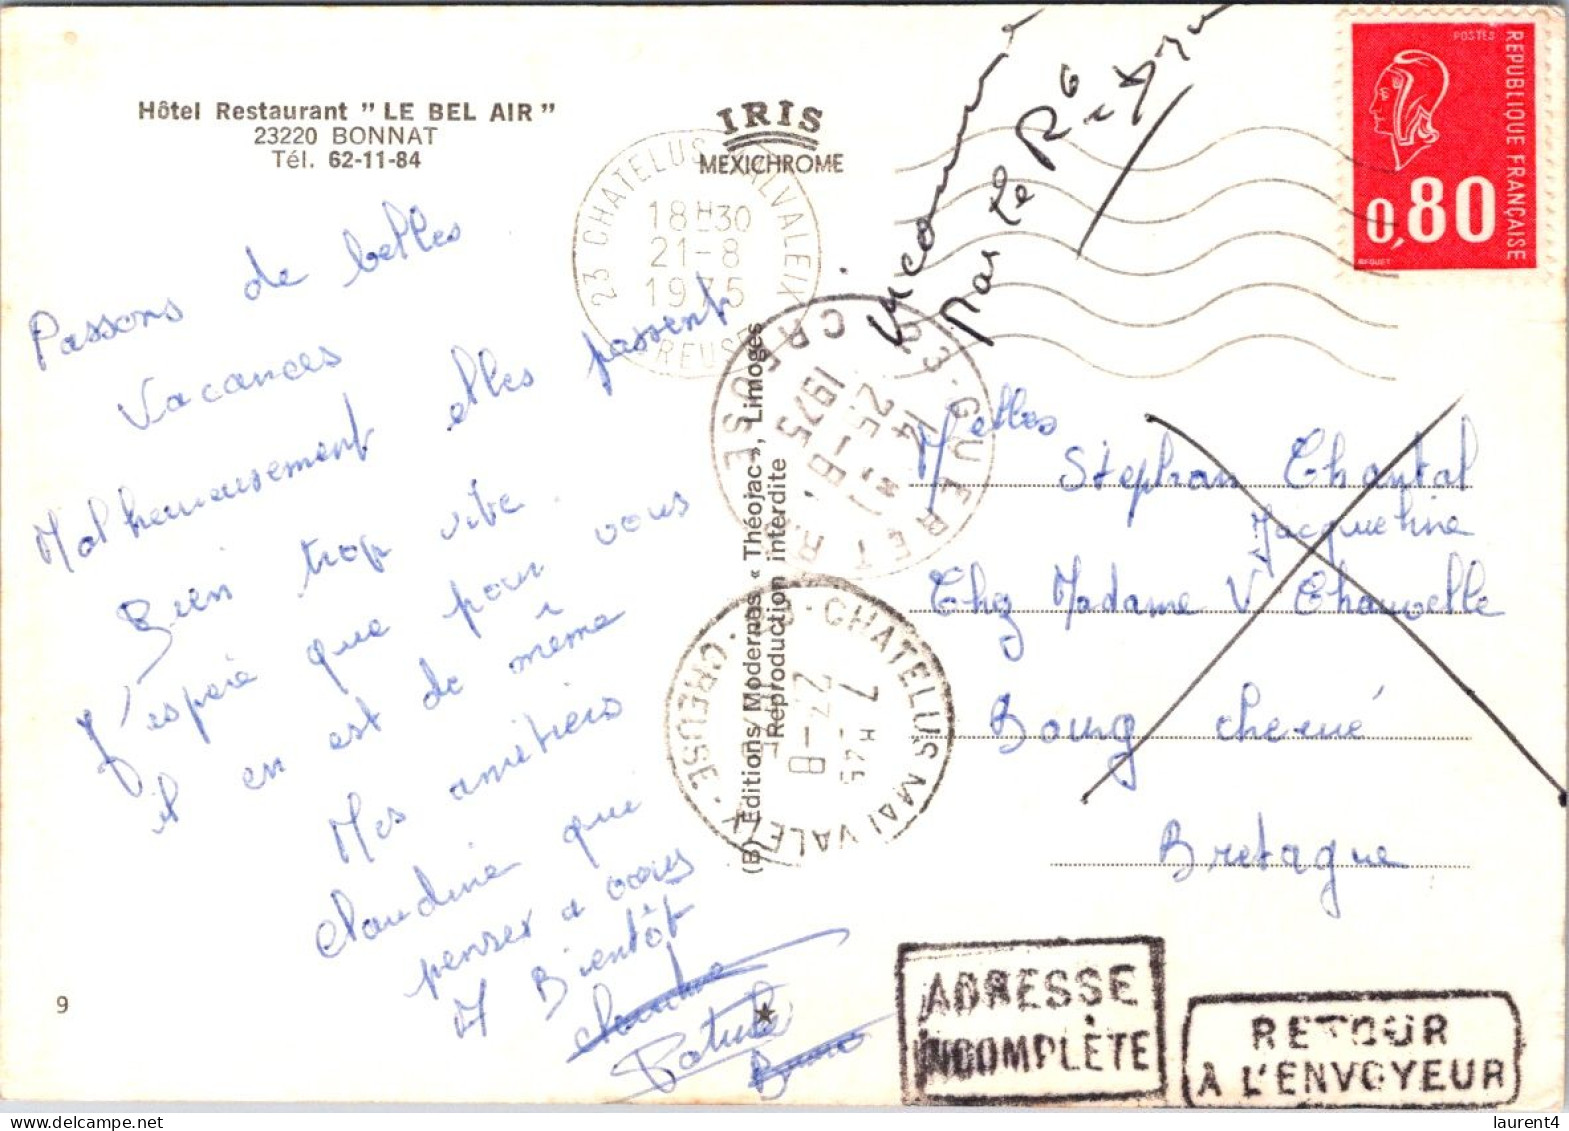 Hôtel Restaurant " LE BEL AIR "
23220 BONNAT
Tél. 62-11-84
IRIS
MEXICHROME
POSTES
REPUBLIQUE FRANÇAISE
0,80
BEQUET
23 CHATELUS MALVALEIX
18H30
21-8
1975
CREUSE
Inconnu
par le
23·GUERET R.P.
14H
25-8
1975
CREUSE
23·CHATELUS MALVALEIX
7H45
27-8
CREUSE
(B) Editions Modernes « Théojac », Limoges
Reproduction interdite
Passons de belles
Vacances
Malheureusement elles passent
Bien trop vite.
J'espère que pour vous
il en est de même
Mes amitiers
Claudine que
penser a vous
A Bientôt
Claudine
Patrick
Bruno
Melles
Stephan Chantal
Jacqueline
Chez Madame V Chauvelle
Bourg
Bretagne
9
ADRESSE
INCOMPLÈTE
RETOUR
A L'ENVOYEUR
laurent4